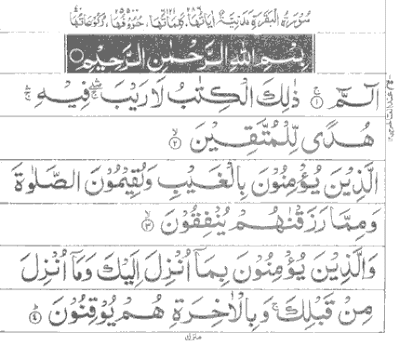 سُوْرَةُ الْبَقَرَةِ مَدَنِيَّةٌ اٰيَاتُهَا كَلِمَاتُهَا حُرُوْفُهَا رُكُوْعَاتُهَا
بِسْمِ اللّٰهِ الرَّحْمٰنِ الرَّحِيْمِ
الٓمّٓ ۚ ﴿۱﴾ ذٰلِكَ الْكِتٰبُ لَا رَيْبَ ۛۖ فِيْهِ ۛۚ
هُدًى لِّلْمُتَّقِيْنَ ۙ ﴿۲﴾
الَّذِيْنَ يُؤْمِنُوْنَ بِالْغَيْبِ وَيُقِيْمُوْنَ الصَّلٰوةَ
وَمِمَّا رَزَقْنٰهُمْ يُنْفِقُوْنَ ۙ ﴿۳﴾
وَالَّذِيْنَ يُؤْمِنُوْنَ بِمَاۤ اُنْزِلَ اِلَيْكَ وَمَاۤ اُنْزِلَ
مِنْ قَبْلِكَ ۚ وَبِالْاٰخِرَةِ هُمْ يُوْقِنُوْنَ ﴿۴﴾
منزل